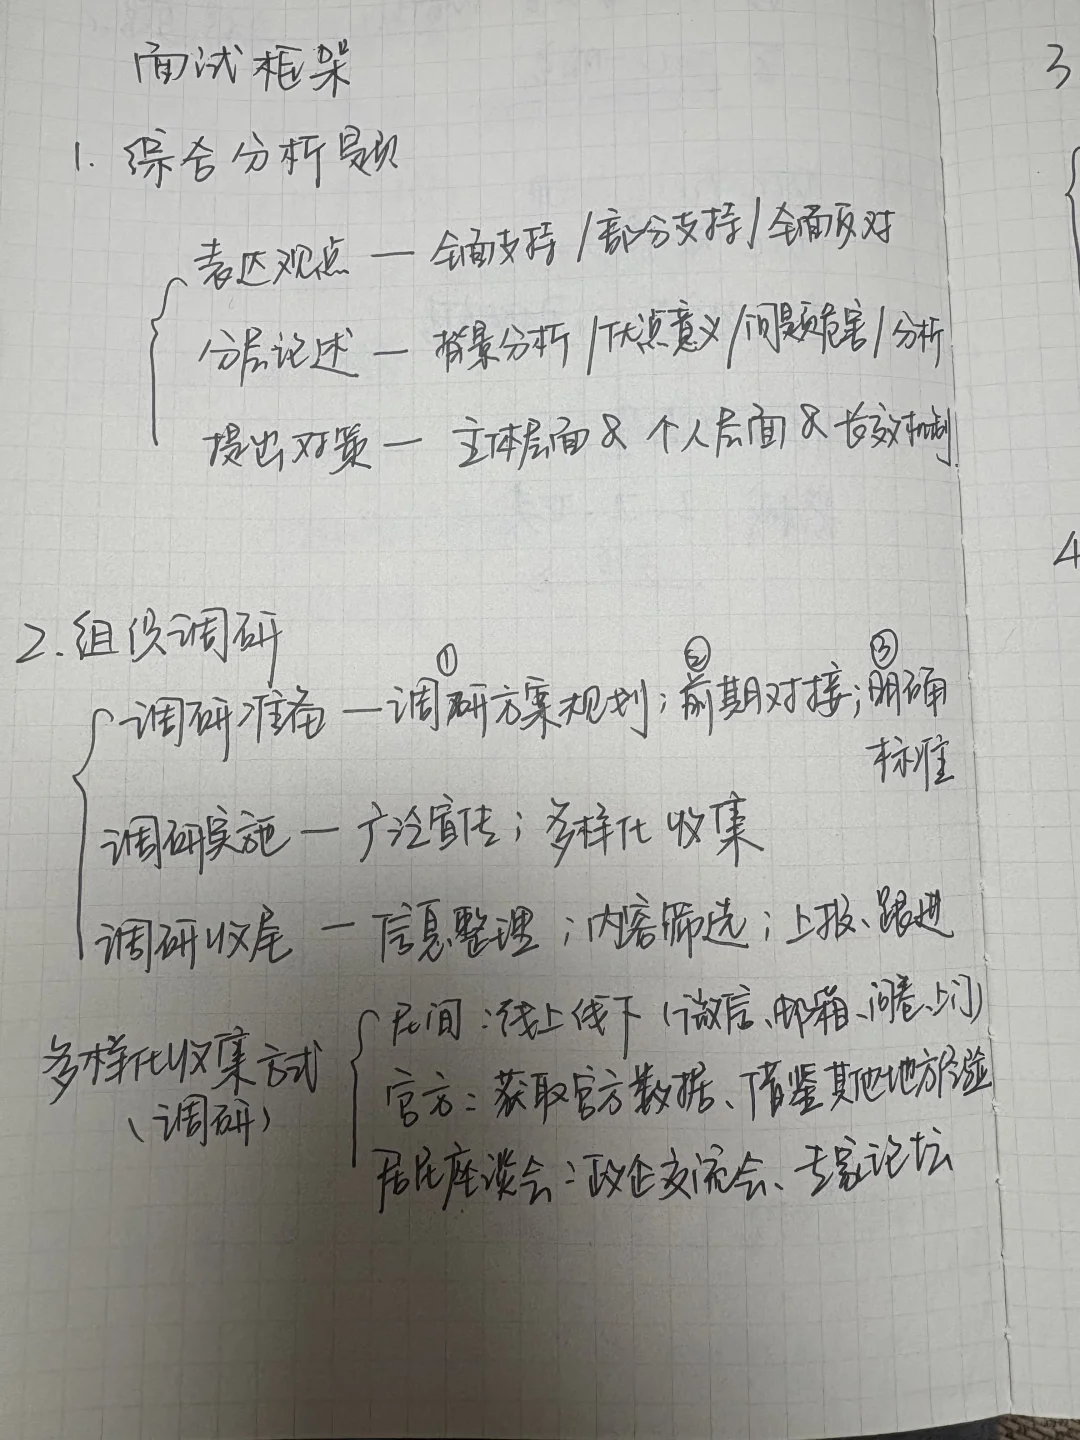 面试框架
1. 综合分析题
表达观点 — 全面支持 / 部分支持 / 全面反对
分层论述 — 背景分析 / 优点意义 / 问题危害 / 分析
提出对策 — 主体层面 & 个人层面 & 长效机制
2. 组织调研
调研准备 — ①调研方案规划；②前期对接；③明确
标准
调研实施 — 广泛宣传；多样化收集
调研收尾 — 信息整理；内容筛选；上报、跟进
多样化收集方式
（调研）
民间：线上线下（微信、邮箱、问卷、上门）
官方：获取官方数据、借鉴其他地方经验
居民座谈会：政企交流会、专家论坛
3
4